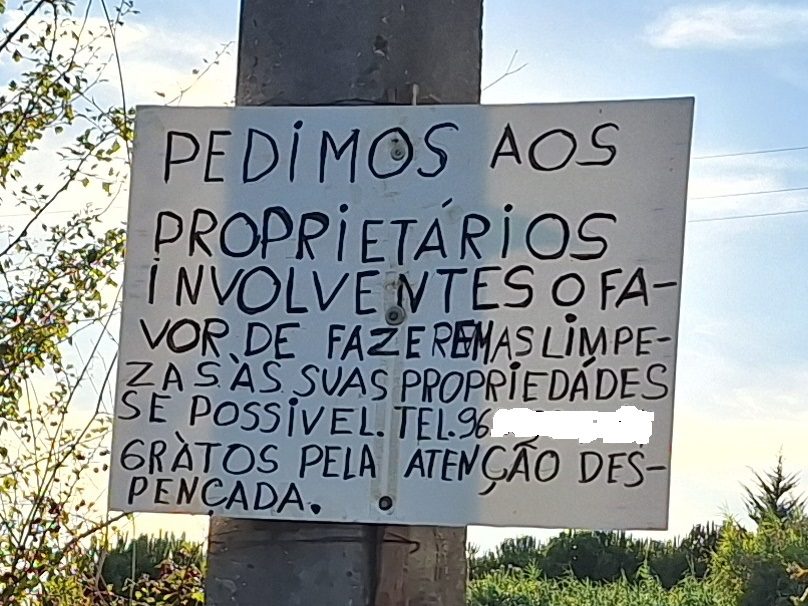 PEDIMOS AOS
PROPRIETÁRIOS
INVOLVENTES O FA-
VOR DE FAZEREM AS LIMPE-
ZAS ÀS SUAS PROPRIEDÁDES
SE POSSIVEL. TEL. 96
GRÀTOS PELA ATENÇÃO DES-
PENCADA.